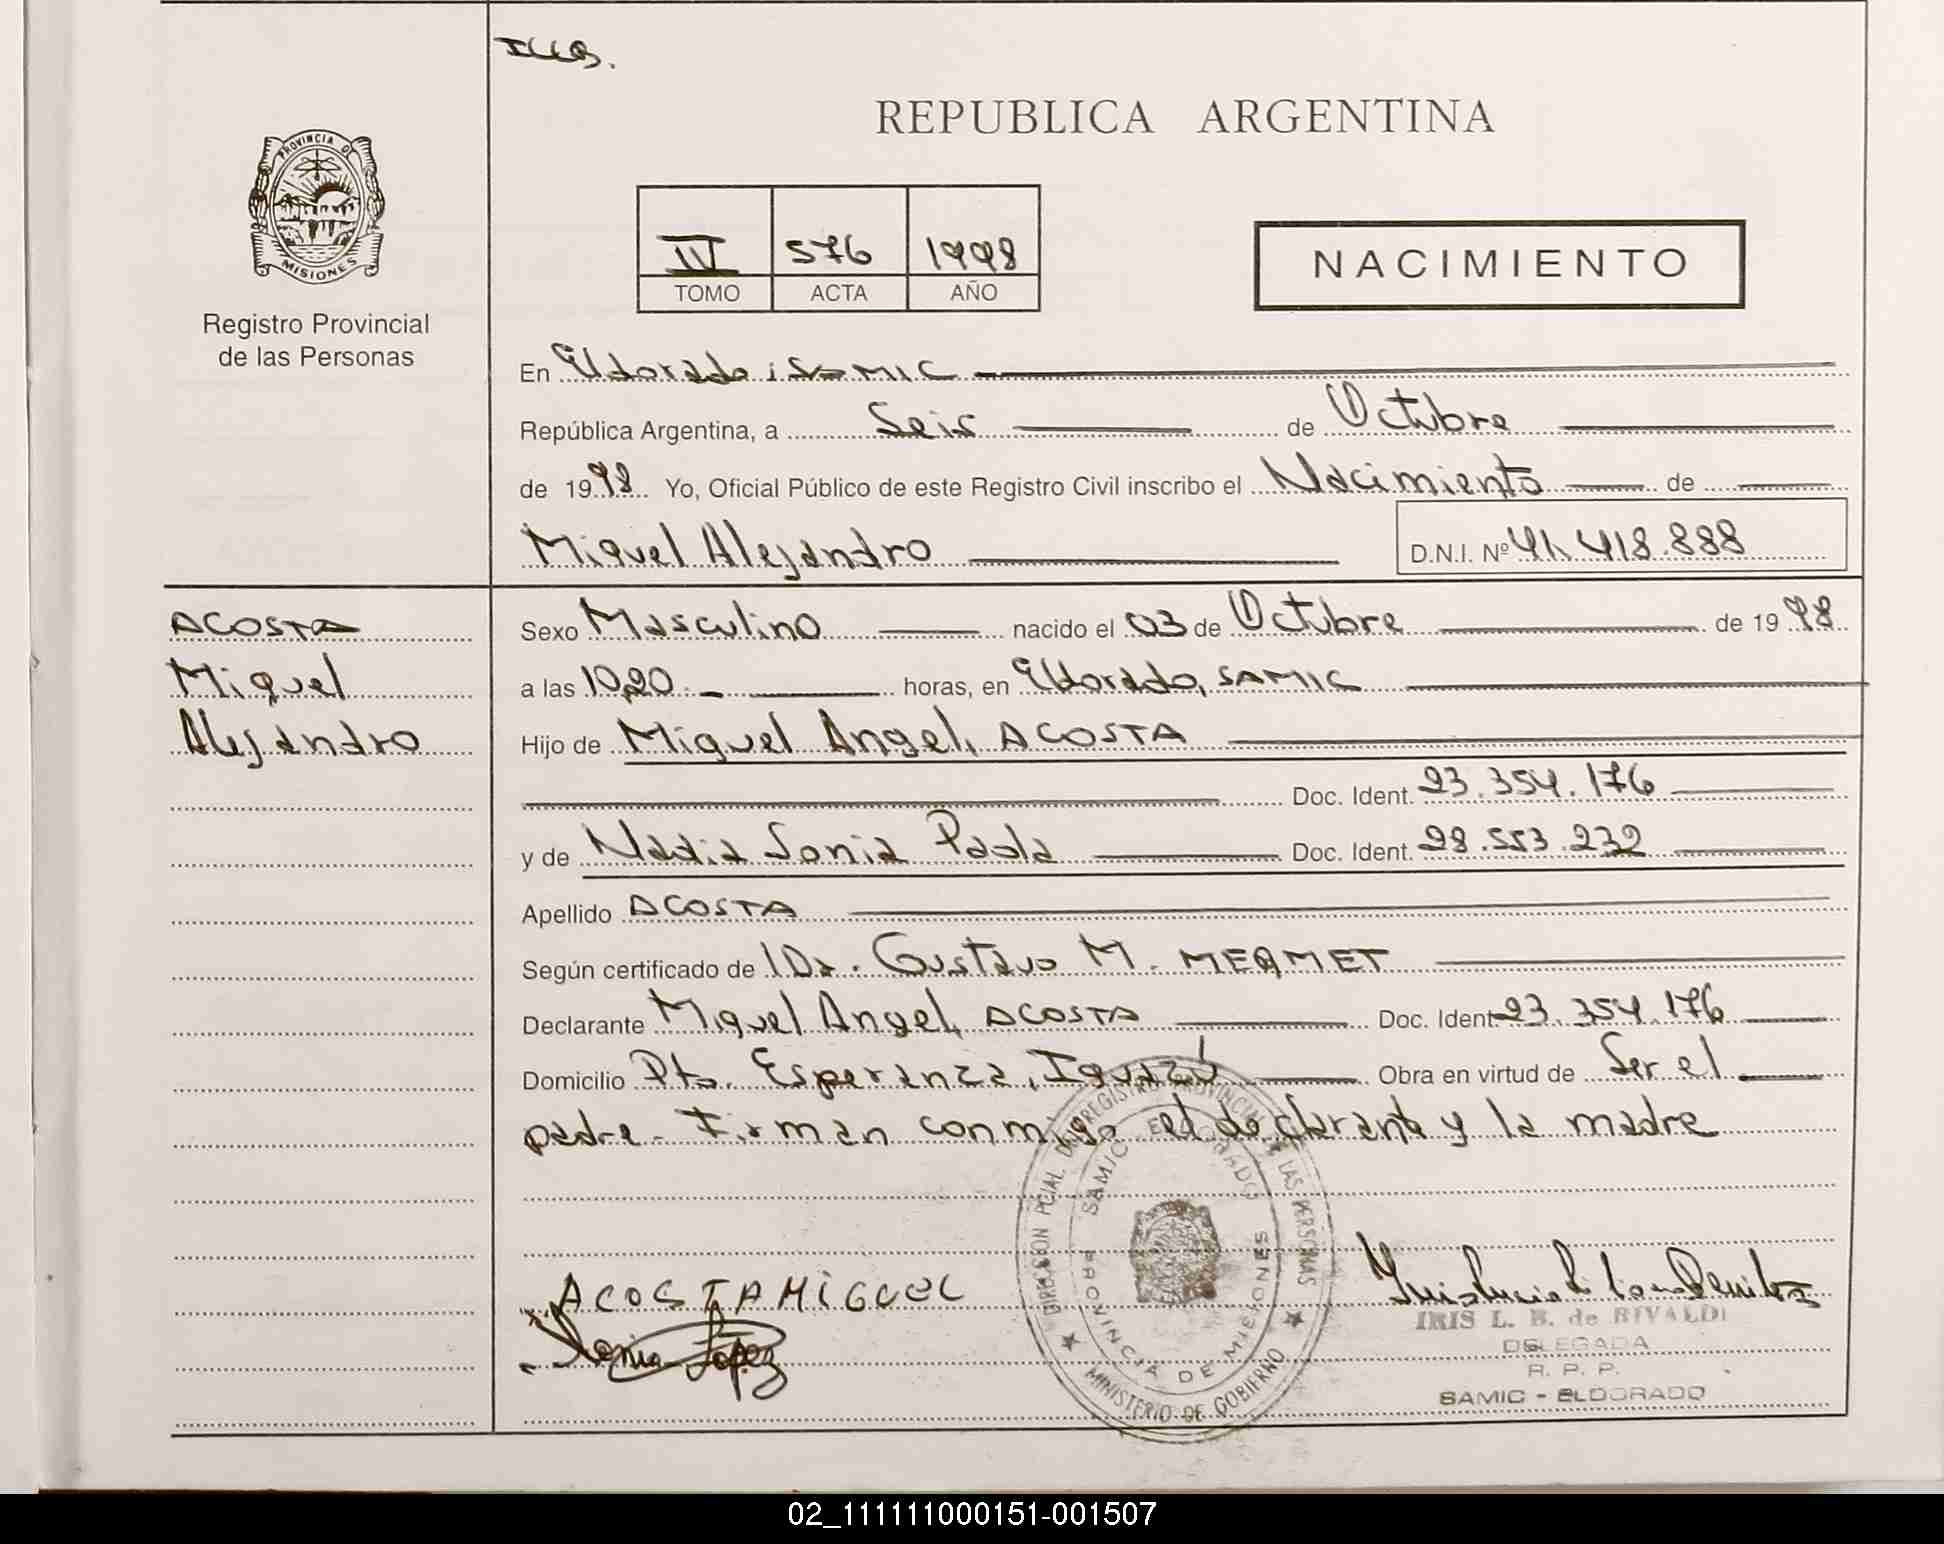 ILLB.
REPUBLICA ARGENTINA
PROVINCIA DE
MISIONES
Registro Provincial
de las Personas
IV 576 1998
TOMO ACTA AÑO
NACIMIENTO
En Eldorado, SAMIC
República Argentina, a Seis de Octubre
de 1998 Yo, Oficial Público de este Registro Civil inscribo el Nacimiento de
Miguel Alejandro D.N.I. Nº 41.418.888
ACOSTA
Miguel
Alejandro
Sexo Masculino nacido el 03 de Octubre de 1998
a las 10,20.- horas, en Eldorado, SAMIC
Hijo de Miguel Angel, ACOSTA
Doc. Ident. 23.354.176
y de Nadia Sonia Paola Doc. Ident. 28.553.232
Apellido ACOSTA
Según certificado de Dr. Gustavo M. MEAMET
Declarante Miguel Angel, ACOSTA Doc. Ident. 23.354.176
Domicilio Pto. Esperanza, Iguazú Obra en virtud de Ser el
padre. Firman conmigo el declarante y la madre
DIRECCION PCIAL. DEL REGISTRO PROVINCIAL DE LAS PERSONAS
SAMIC ELDORADO
PROVINCIA DE MISIONES
MINISTERIO DE GOBIERNO
ACOSTA MIGUEL
Sonia López
IRIS L. B. de RIVALDI
DELEGADA
R. P. P.
SAMIC - ELDORADO
02_111111000151-001507